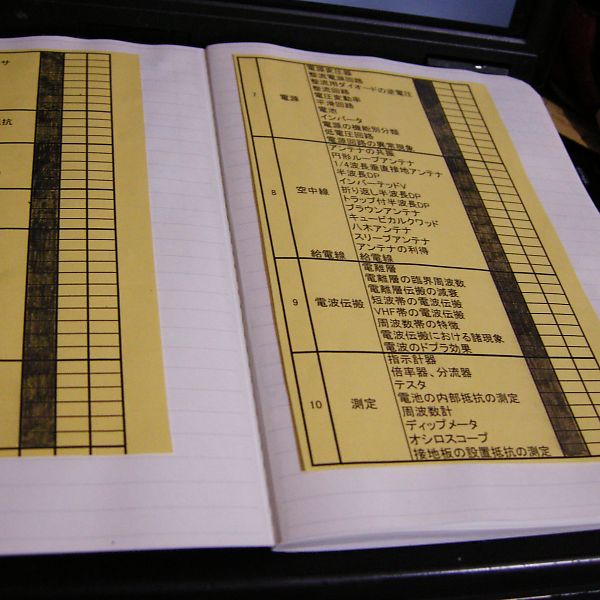 サ
抗
7 電源
電源変圧器
整流電源回路
整流用ダイオードの逆電圧
整流回路
電圧変動率
平滑回路
電池
インバータ
電源の機能別分類
低電圧回路
電源回路の異常現象
8 空中線
アンテナの共振
円形ループアンテナ
1/4波長垂直接地アンテナ
半波長DP
インバーテッドV
折り返し半波長DP
トラップ付半波長DP
ブラウンアンテナ
キュービカルクワッド
八木アンテナ
スリーブアンテナ
アンテナの利得
給電線 給電線
9 電波伝搬
電離層
電離層の臨界周波数
電離層伝搬の減衰
短波帯の電波伝搬
VHF帯の電波伝搬
周波数帯の特徴
電波伝搬における諸現象
電波のドプラ効果
10 測定
指示計器
倍率器、分流器
テスタ
電池の内部抵抗の測定
周波数計
ディップメータ
オシロスコープ
接地板の設置抵抗の測定